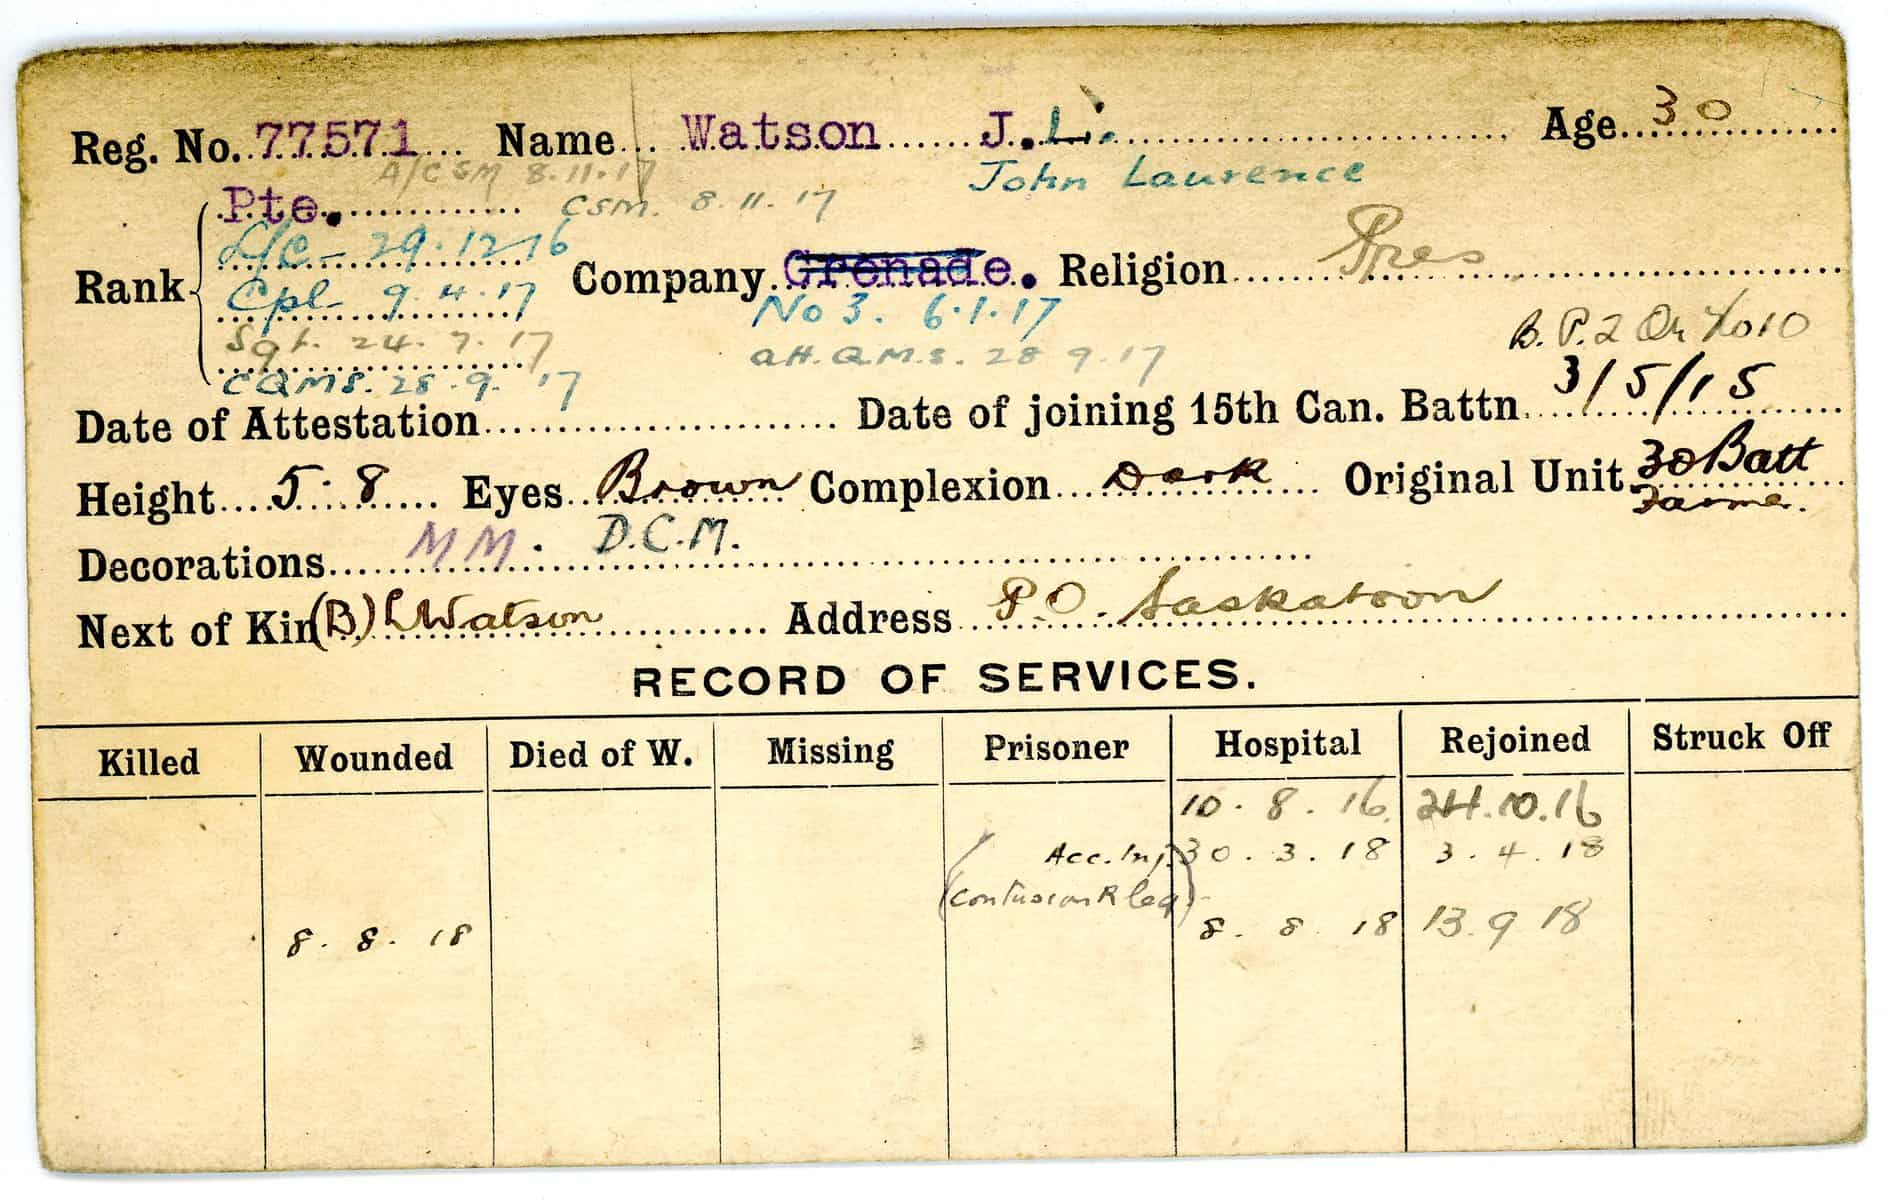 Reg. No. 77571 Name Watson J. L. Age 30
A/CSM 8.11.17 John Laurence
Pte. CSM. 8.11.17
L/C - 29.12.16
Rank Company Grenade. Religion Pres
Cpl 9.4.17 No 3. 6.1.17
Sgt. 24.7.17 B.P.2 Or 4010
CQMS. 28.9.17 a H.Q.M.S. 28 9.17
Date of Attestation Date of joining 15th Can. Battn. 3/5/15
Height 5.8 Eyes Brown Complexion Dark Original Unit 30 Batt
Farmer.
Decorations MM. D.C.M.
Next of Kin (B) Watson Address P.O. Saskatoon
RECORD OF SERVICES.
Killed Wounded Died of W. Missing Prisoner Hospital Rejoined Struck Off
10.8.16 24.10.16
Acc. Inj. 30.3.18 3.4.18
(Contusion R leg)
8.8.18 8.8.18 13.9.18